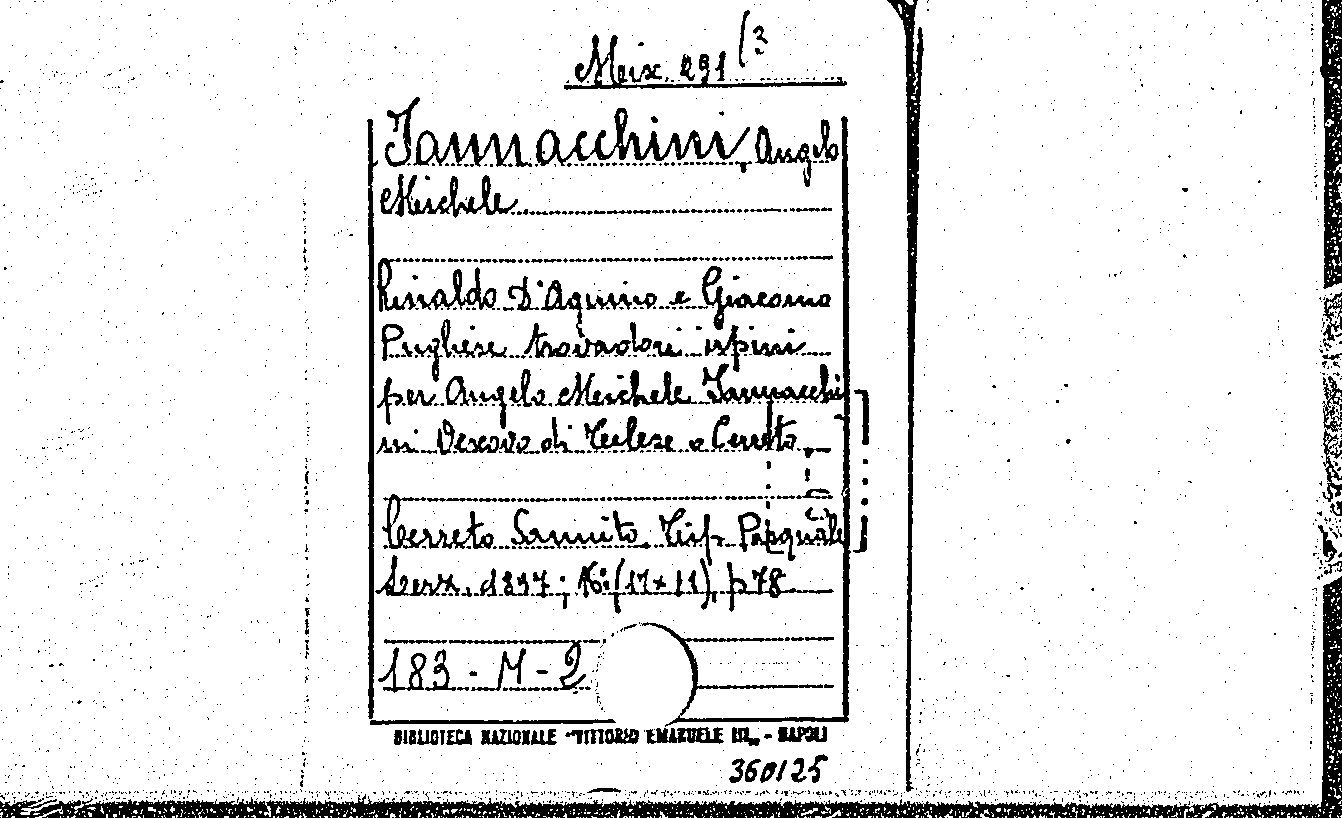 Misc. 291 (3
Iannacchini, Angelo
Michele
Rinaldo D'Aquino e Giacomo
Pugliese trovadori irpini
per Angelo Michele Iannacchi
ni Vescovo di Telese o Cerreto
Cerreto Sannita. Tip. Pasquale
1897; (17x11), p 78
183 - M - 2
BIBLIOTECA NAZIONALE "VITTORIO EMANUELE III„ - NAPOLI
360125